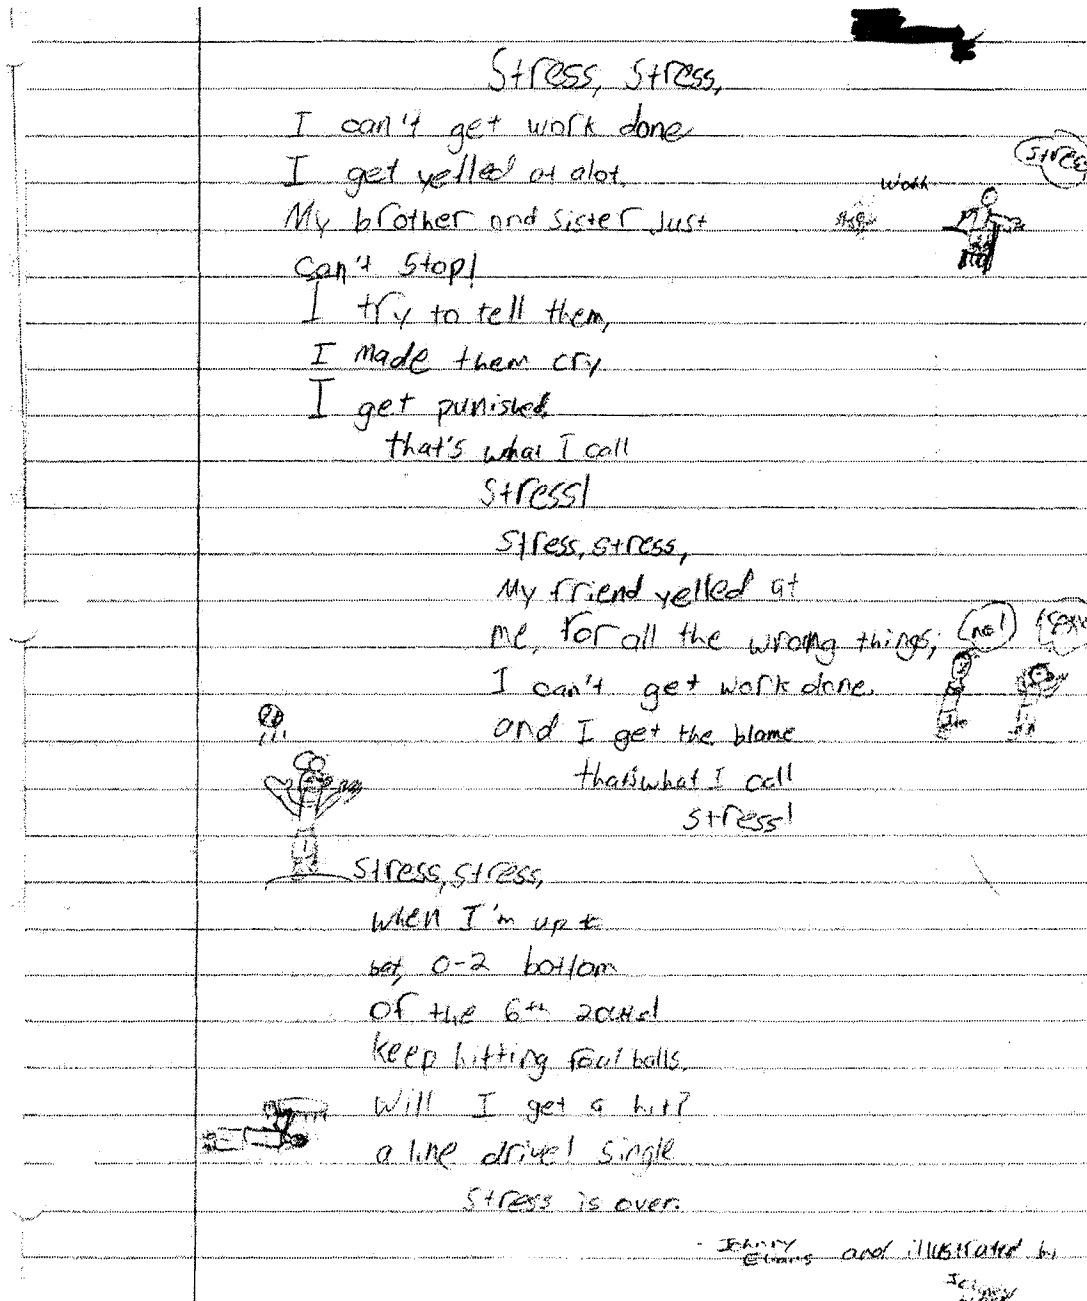 Stress, Stress,
I can't get work done
I get yelled at alot.
Stress
Work
My brother and sister Just
can't stop!
I try to tell them,
I made them cry
I get punished.
that's what I call
Stress!
Stress, stress,
My friend yelled at
me, for all the wrong things;
no!
I can't get work done.
and I get the blame
that's what I call
stress!
Stress, stress,
when I'm up to
bat, 0-2 bottom
of the 6th 2 outs!
keep hitting foul balls.
Will I get a hit?
a line drive! single
Stress is over.
- Johnny
Evans and illustrated by